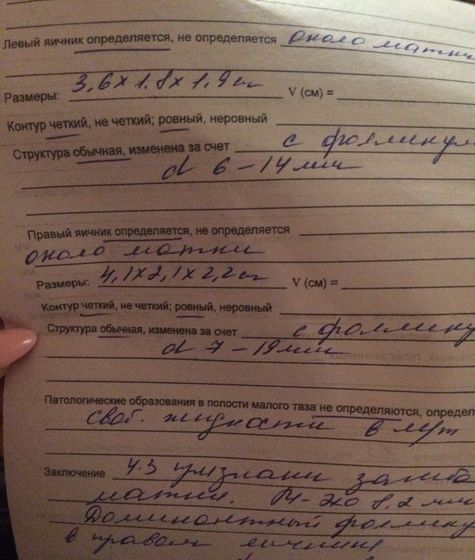 Левый яичник определяется, не определяется около матки
Размеры: 3,6х1.8х1,9см V (см) =
Контур четкий, не четкий; ровный, неровный
Структура обычная, изменена за счет с фолликул
d 6-14мм
Правый яичник определяется, не определяется
около матки
Размеры: 4,1х2,1х2,2см V (см) =
Контур четкий, не четкий; ровный, неровный
Структура обычная, изменена за счет с фоллику
d 7-19мм
Патологические образования в полости малого таза не определяются, определ
своб. жидкости в м/т
Заключение УЗ признаки загиба
матки. М-эхо 8.2 мм
Доминантный фоллику
в правом яичнике